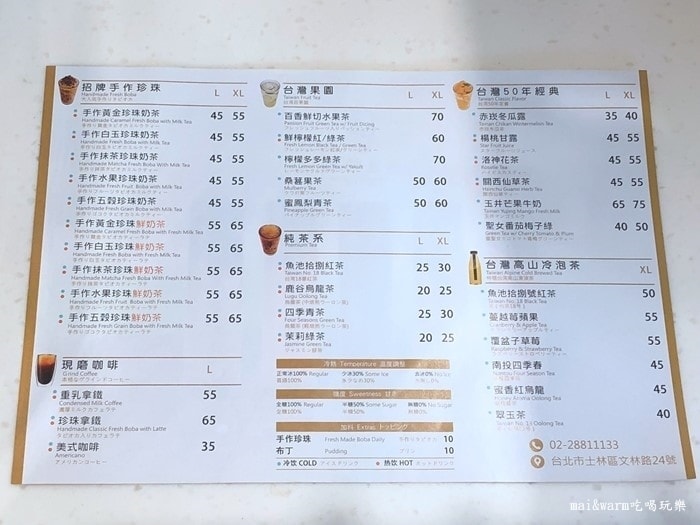 招牌手作珍珠 L XL
Handmade Fresh Boba
手作黃金珍珠奶茶 45 55
Handmade Caramel Fresh Boba with Milk Tea
手作白玉珍珠奶茶 45 55
Handmade Classic Fresh Boba with Milk Tea
手作抹茶珍珠奶茶 45 55
Handmade Matcha Fresh Boba with Milk Tea
手作水果珍珠奶茶 45 55
Handmade Fruit Fresh Boba with Milk Tea
手作五穀珍珠奶茶 45 55
Handmade Fresh Grain Boba with Milk Tea
手作黃金珍珠鮮奶茶 55 65
Handmade Caramel Fresh Boba with Fresh Milk Tea
手作白玉珍珠鮮奶茶 55 65
Handmade Classic Fresh Boba with Fresh Milk Tea
手作抹茶珍珠鮮奶茶 55 65
Handmade Matcha Fresh Boba With Fresh Milk Tea
手作水果珍珠鮮奶茶 55 65
Handmade Fruit Fresh Boba with Fresh Milk Tea
手作五穀珍珠鮮奶茶 55 65
Handmade Fresh Grain Boba with Fresh Milk Tea
現磨咖啡 L
Grind Coffee
重乳拿鐵 55
Condensed Milk Coffee
珍珠拿鐵 65
Handmade Classic Fresh Boba with Latte
タピオカ入りカフェラテ
美式咖啡 35
Americano
アメリカンコーヒー
台灣果園 L XL
Taiwan Fruit Tea
百香鮮切水果茶 70
Passion Fruit Green Tea w/ Fruit Dicing
鮮檸檬紅/綠 60
Fresh Lemon Black Tea / Green Tea
檸檬多多綠茶 70
Fresh Lemon Green Tea w/ Yakult
桑葚果茶 50 60
Mulberry Tea
蜜鳳梨青茶 50 60
Pineapple Green Tea
純茶系 L XL
Premium Tea
魚池拾捌紅茶 25 30
Taiwan No. 18 Black Tea
鹿谷烏龍茶 20 25
Lugu Oolong Tea
四季青茶 25 30
Four Seasons Green Tea
茉莉綠茶 20 25
Jasmine Green Tea
ジャスミン緑茶
冷熱 Temperature 温度調整
正常冰100% Regular 少冰30% Some Ice 去冰0% No Ice
甜度 Sweetness 甘さ
全糖100% Regular 半糖50% Some Sugar 無糖0% No Sugar
加料 Extras トッピング
手作珍珠 Fresh Made Boba Daily 手作りタピオカ 10
布丁 Pudding プリン 10
冷飲 COLD アイスドリンク 熱飲 HOT ホットドリンク
台灣50年經典 L XL
Taiwan Classic Flavor
赤崁冬瓜露 35 40
楊桃甘露 45 55
Star Fruit Juice
洛神花茶 45 55
Roselle Tea
關西仙草茶 45 55
玉井芒果牛奶 65 75
Tainan Yujing Mango Fresh Milk
聖女番茄梅子綠 40 50
Green Tea w/ Cherry Tomato & Plum
台灣高山冷泡茶 XL
Taiwan Alpine Cold Brewed Tea
魚池拾捌號紅茶 50
Taiwan No.18 Black Tea
蔓越莓蘋果 55
Cranberry & Apple Tea
覆盆子草莓 55
Raspberry & Strawberry Tea
南投四季春 45
Nantou Four Season Tea
蜜香紅烏龍 45
Honey Aroma Oolong Tea
翠玉茶 40
02-28811133
台北市士林區文林路24號
mai&warm吃喝玩樂